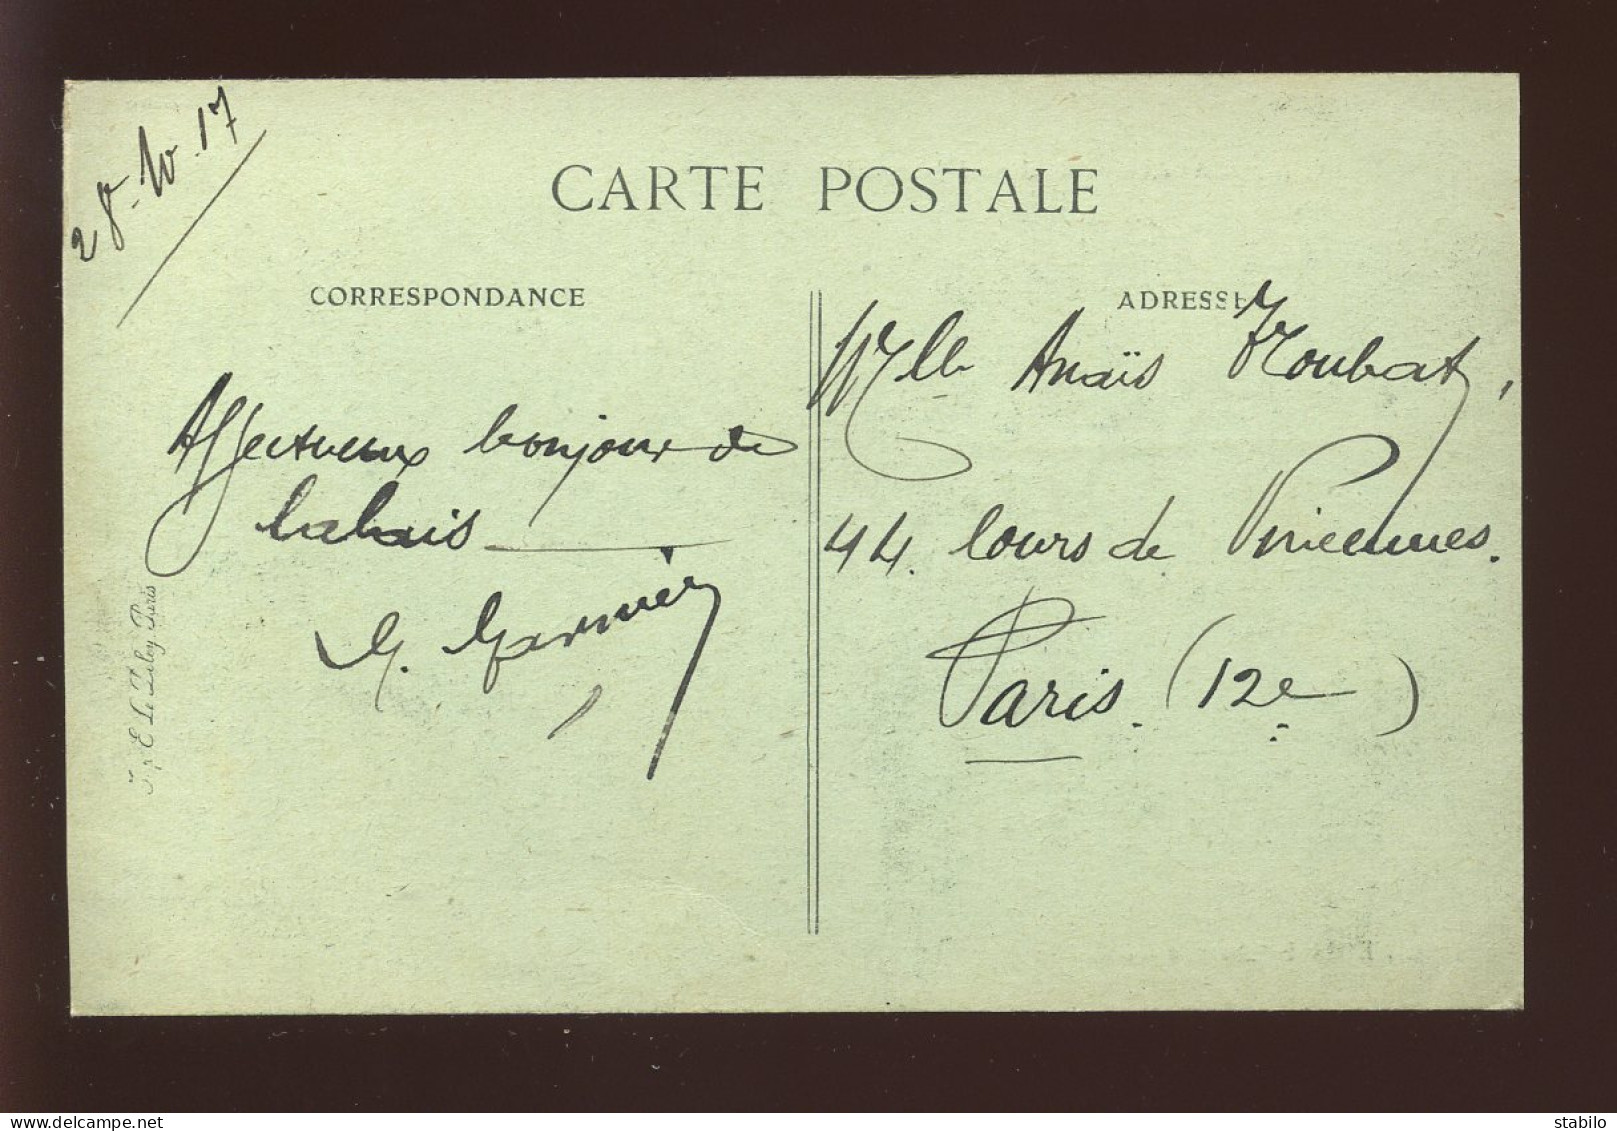 28-10.17
CARTE POSTALE
CORRESPONDANCE
ADRESSE
Affectueux bonjour de
Calais
G. Garnier
Mlle Anaïs Troubat,
44. Cours de Vincennes.
Paris. (12e)
Imp. E. Le Deley Paris
stabilo
www.delcampe.net